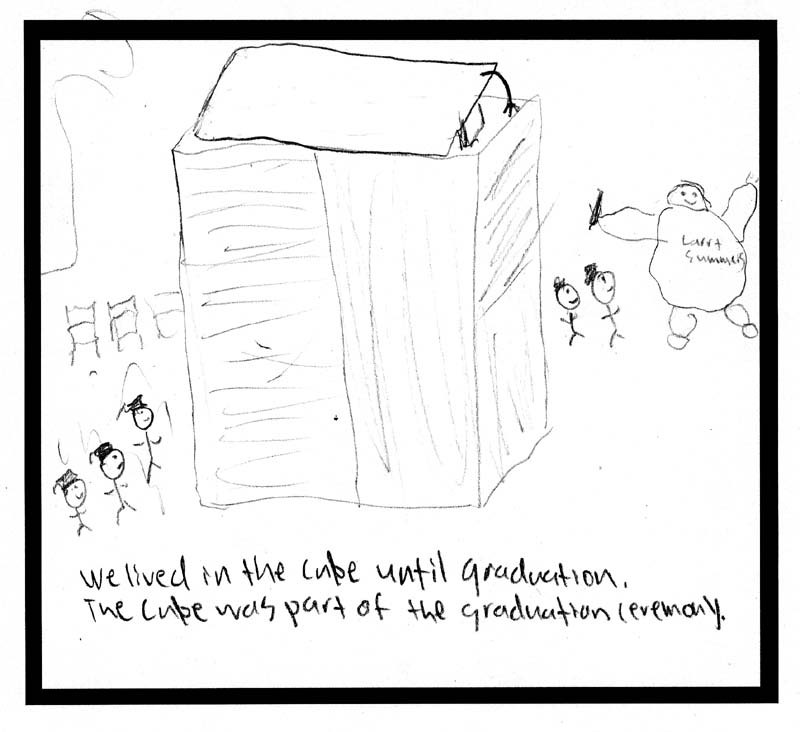 Larry
Summers
We lived in the cube until graduation.
The cube was part of the graduation ceremony.